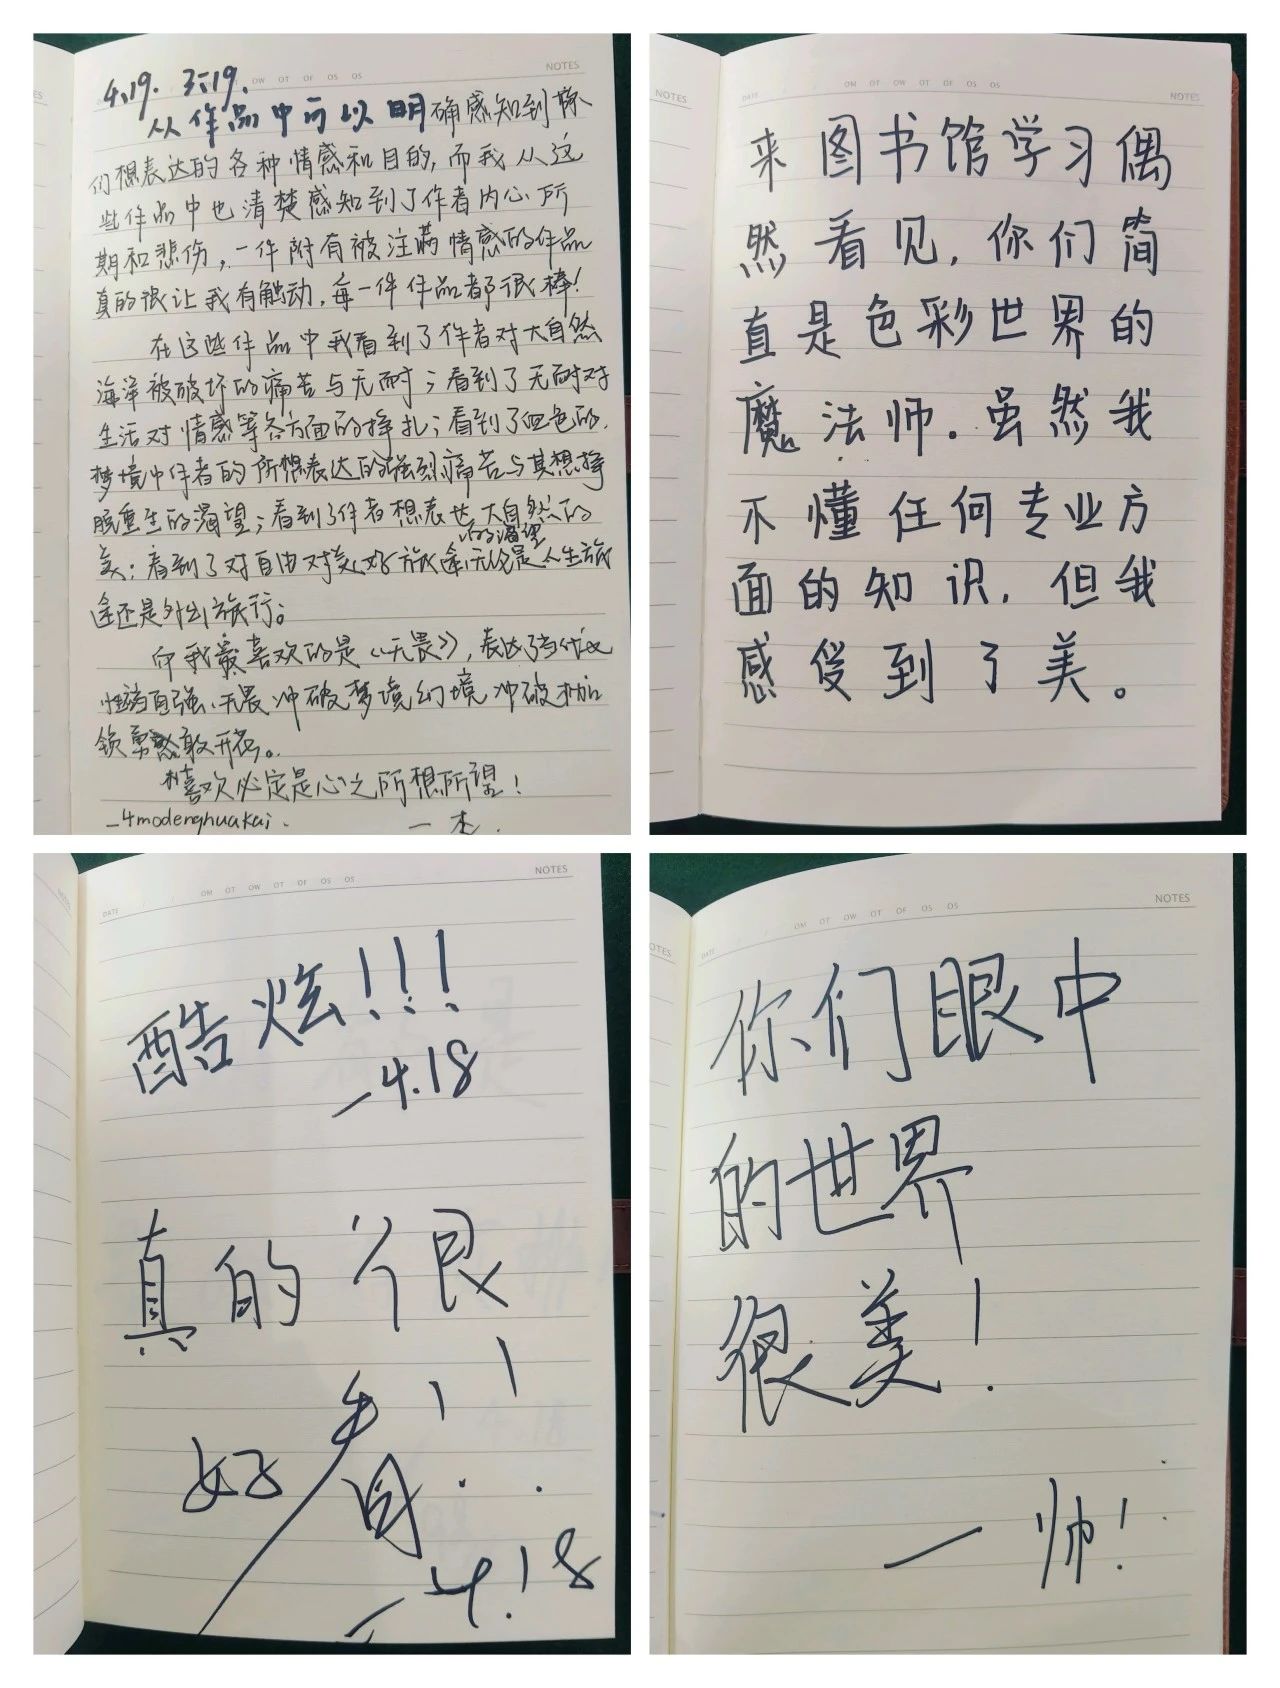 NOTES
4.19. 3:19.
从作品中可以明确感知到你
们想表达的各种情感和目的,而我从这
些作品中也清楚感知到了作者内心所
期和悲伤,一件附有被注满情感的作品
真的很让我有触动,每一件作品都很棒!
在这些作品中我看到了作者对大自然
海洋被破坏的痛苦与无耐;看到了无耐对
生活对情感等各方面的挣扎;看到了四色的
梦境中作者的所想表达的强烈痛苦与其想挣
脱重生的渴望;看到了作者想表达大自然的
美;看到了对自由对美好旅途的渴望,无论是人生旅
途还是外出旅行。
而我最喜欢的是《无畏》,表达了当代女
性独自强、无畏冲破梦境幻境冲破枷
锁勇敢开花。
喜欢必定是心之所想所望!
-4modenghuakai.
DATE OM OT OW OT OF OS OS NOTES
来图书馆学习偶
然看见,你们简
直是色彩世界的
魔法师.虽然我
不懂任何专业方
面的知识,但我
感受到了美。
DATE OM OT OW OT OF OS OS NOTES
酷炫!!!
—4.18
真的很
好看!!
—4.18
DATE OM OT OW OT OF OS OS NOTES
你们眼中
的世界
很美!
—帅!